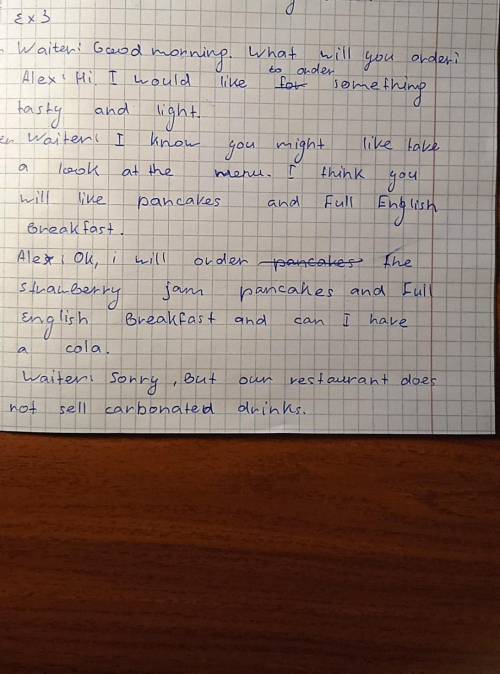 Ex 3
Waiter: Good morning. What will you order:
Alex: Hi. I would like to order something
tasty and light.
Waiter: I know you might like take
a look at the menu. I think you
will like pancakes and Full English
Breakfast.
Alex: Ok, i will order pancakes the
strawberry jam pancakes and Full
English Breakfast and can I have
a cola.
Waiter: Sorry, But our restaurant does
not sell carbonated drinks.